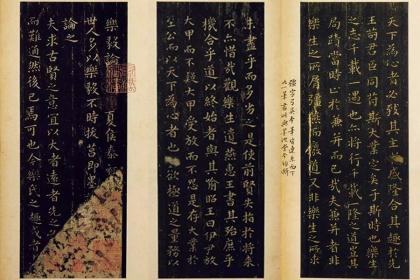 樂毅論 夏侯泰
世人多以樂毅不時拔莒即墨
論之
夫求古賢之意宜以大者遠者先之
而難通然後已焉可也今樂氏之趣或者
未盡乎而多劣之是使前賢失指於將來
不亦惜哉觀樂生遺燕惠王書其殆庶乎
機合乎道以終始者與其喻昭王曰伊尹放
大甲而不疑大甲受放而不怨是存大業於
至公而以天下為心者也夫欲極道之量務以
天下為心者必致其主於盛隆合其趣於先
王苟君臣同符斯大業定矣于斯時也樂生
之志千載一遇也亦將行千載一隆之道豈其
局蹟當時止於兼并而已哉夫兼并者非
樂生之所屑彊燕而廢道又非樂生之所求